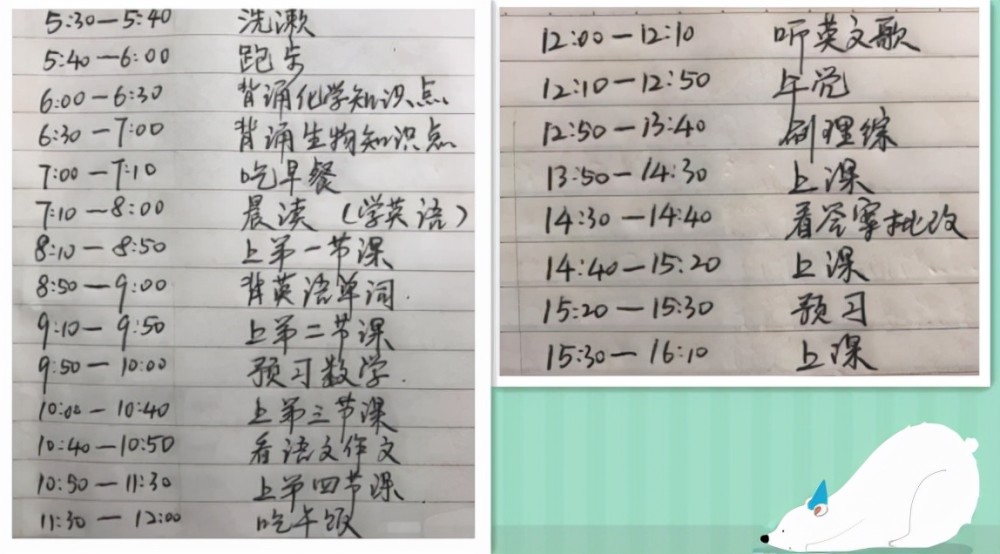 5:30—5:40 洗漱
5:40—6:00 跑步
6:00—6:30 背诵化学知识点
6:30—7:00 背诵生物知识点
7:00—7:10 吃早餐
7:10—8:00 晨读（学英语）
8:10—8:50 上第一节课
8:50—9:00 背英语单词.
9:10—9:50 上第二节课
9:50—10:00 预习数学.
10:00—10:40 上第三节课
10:40—10:50 看语文作文
10:50—11:30 上第四节课
11:30—12:00 吃午饭
12:00—12:10 听英文歌
12:10—12:50 午觉
12:50—13:40 刷理综
13:50—14:30 上课
14:30—14:40 看答案批改
14:40—15:20 上课
15:20—15:30 预习
15:30—16:10 上课